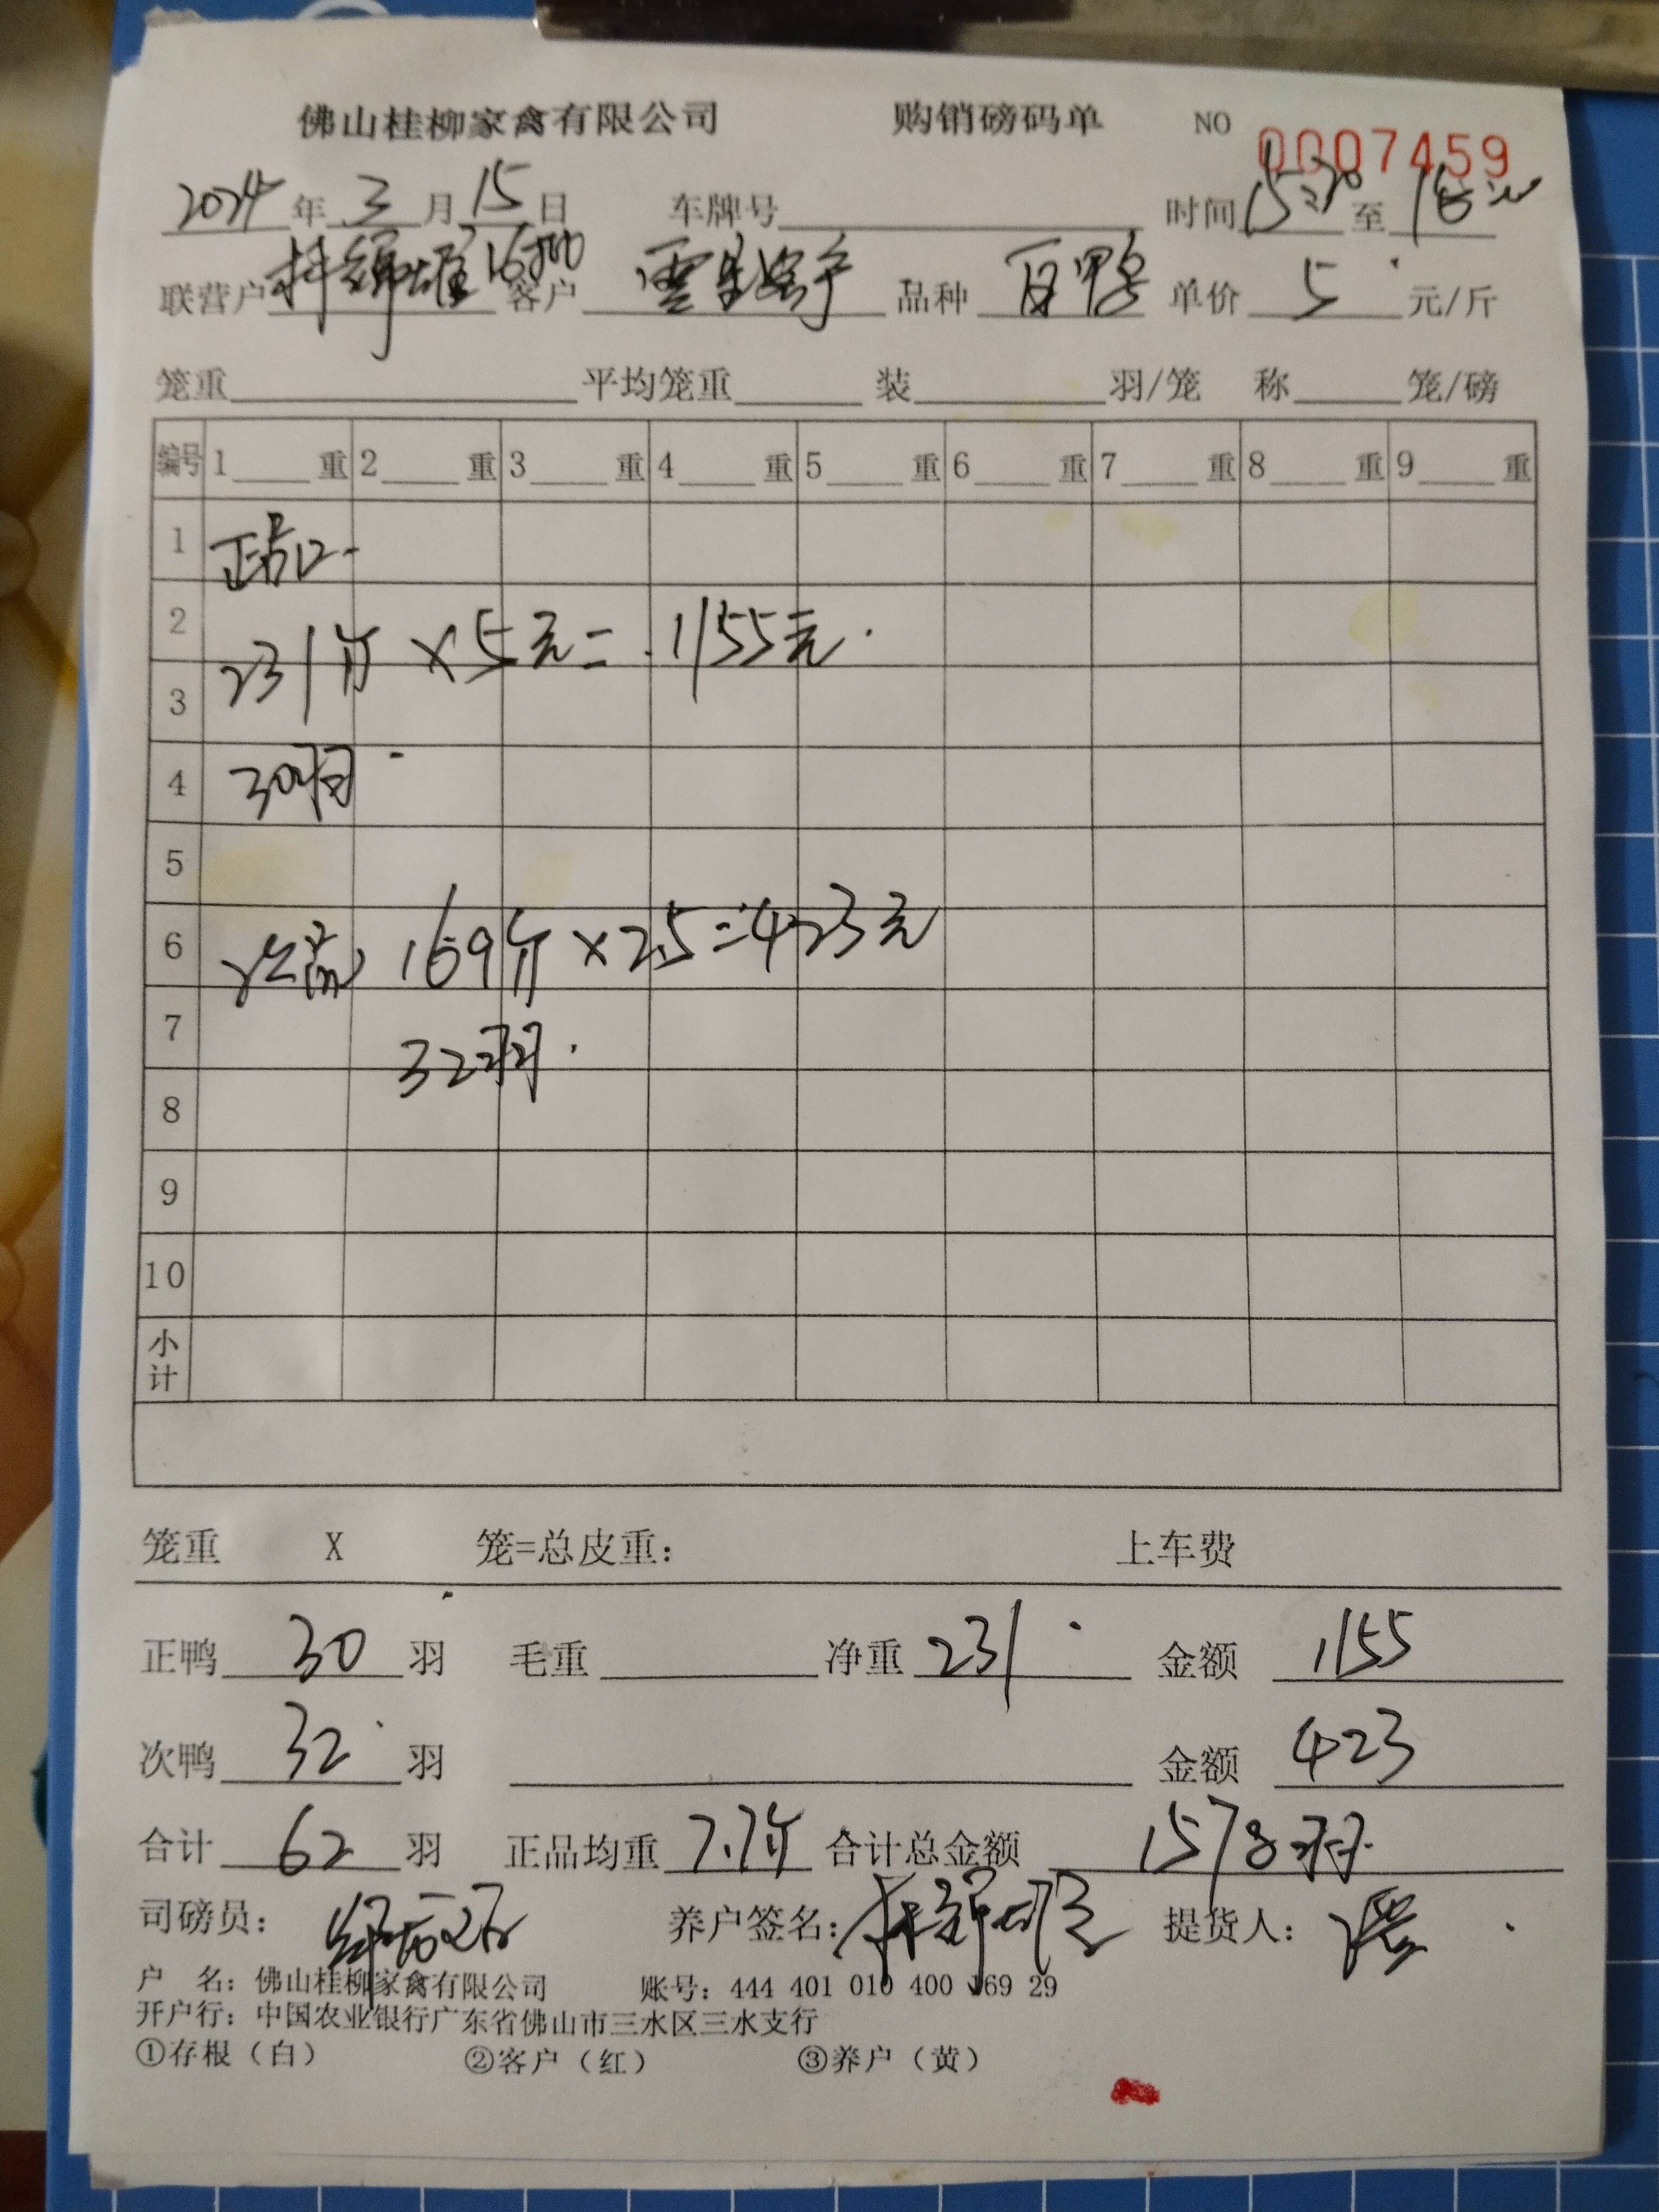 佛山桂柳家禽有限公司 购销磅码单 NO 0007459
2024年 3 月 15 日 车牌号 时间 15:20 至
联营户 客户 品种 白鸭 单价 5 元/斤
笼重 平均笼重 装 羽/笼 称 笼/磅
编号 1 重 2 重 3 重 4 重 5 重 6 重 7 重 8 重 9 重
1 正品
2
231斤 ×5元= 1155元
3
4 30羽
5
6 次品 169斤 ×2.5=423元
7
32羽
8
9
10
小计
笼重 X 笼=总皮重: 上车费
正鸭 30 羽 毛重 净重 231 金额 1155
次鸭 32 羽 金额 423
合计 62 羽 正品均重 7.7斤 合计总金额 1578羽
司磅员: 养户签名: 提货人:
户 名: 佛山桂柳家禽有限公司 账号: 444 401 010 400 169 29
开户行: 中国农业银行广东省佛山市三水区三水支行
①存根(白) ②客户(红) ③养户(黄)